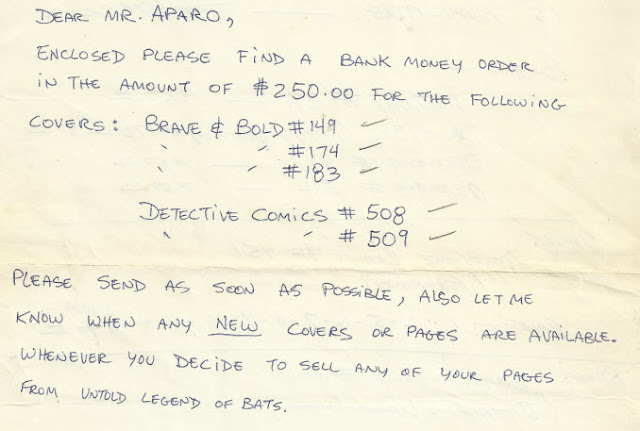 DEAR MR. APARO,
ENCLOSED PLEASE FIND A BANK MONEY ORDER
IN THE AMOUNT OF $250.00 FOR THE FOLLOWING
COVERS: BRAVE & BOLD #149 ✓
" " #174 ✓
" " #183 ✓
DETECTIVE COMICS # 508 ✓
" " # 509 ✓
PLEASE SEND AS SOON AS POSSIBLE, ALSO LET ME
KNOW WHEN ANY NEW COVERS OR PAGES ARE AVAILABLE.
WHENEVER YOU DECIDE TO SELL ANY OF YOUR PAGES
FROM UNTOLD LEGEND OF BATS.